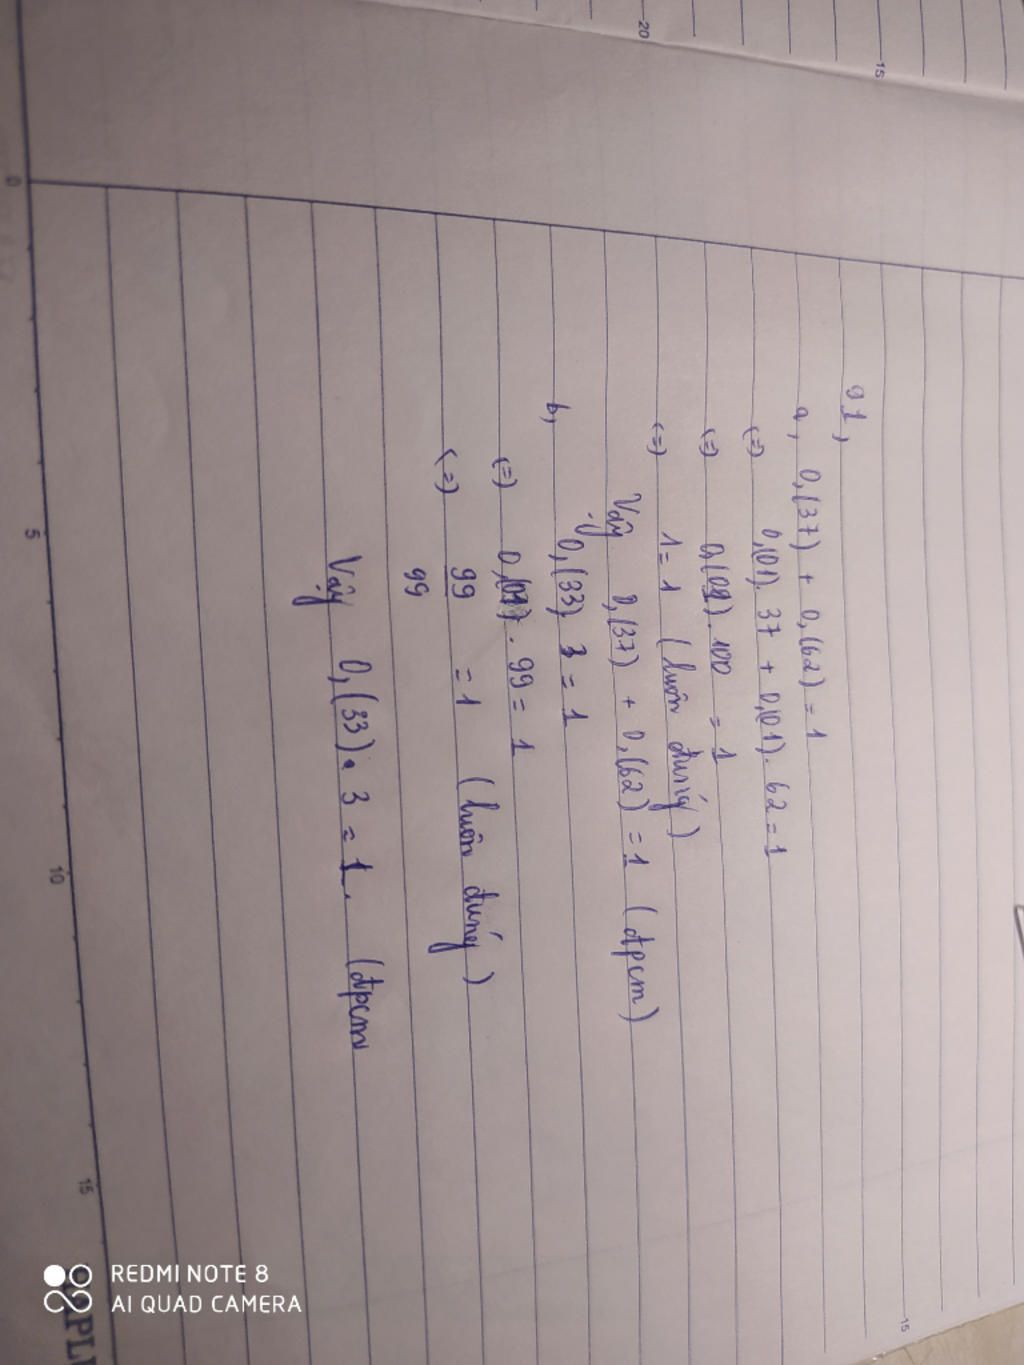 91,
a, 0,(37) + 0,(62) = 1
(=) 0,(01). 37 + 0,(01). 62 = 1
(=) 0,(01). 100 = 1
(=) 1 = 1 (luôn đúng)
Vậy 0,(37) + 0,(62) = 1 (đpcm)
b, 0,(33). 3 = 1
(=) 0,(01). 99 = 1
(=) 99 = 1 (luôn đúng)
99
Vậy 0,(33). 3 = 1. (đpcm
REDMI NOTE 8
AI QUAD CAMERA
0
5
10
15
20
15
15